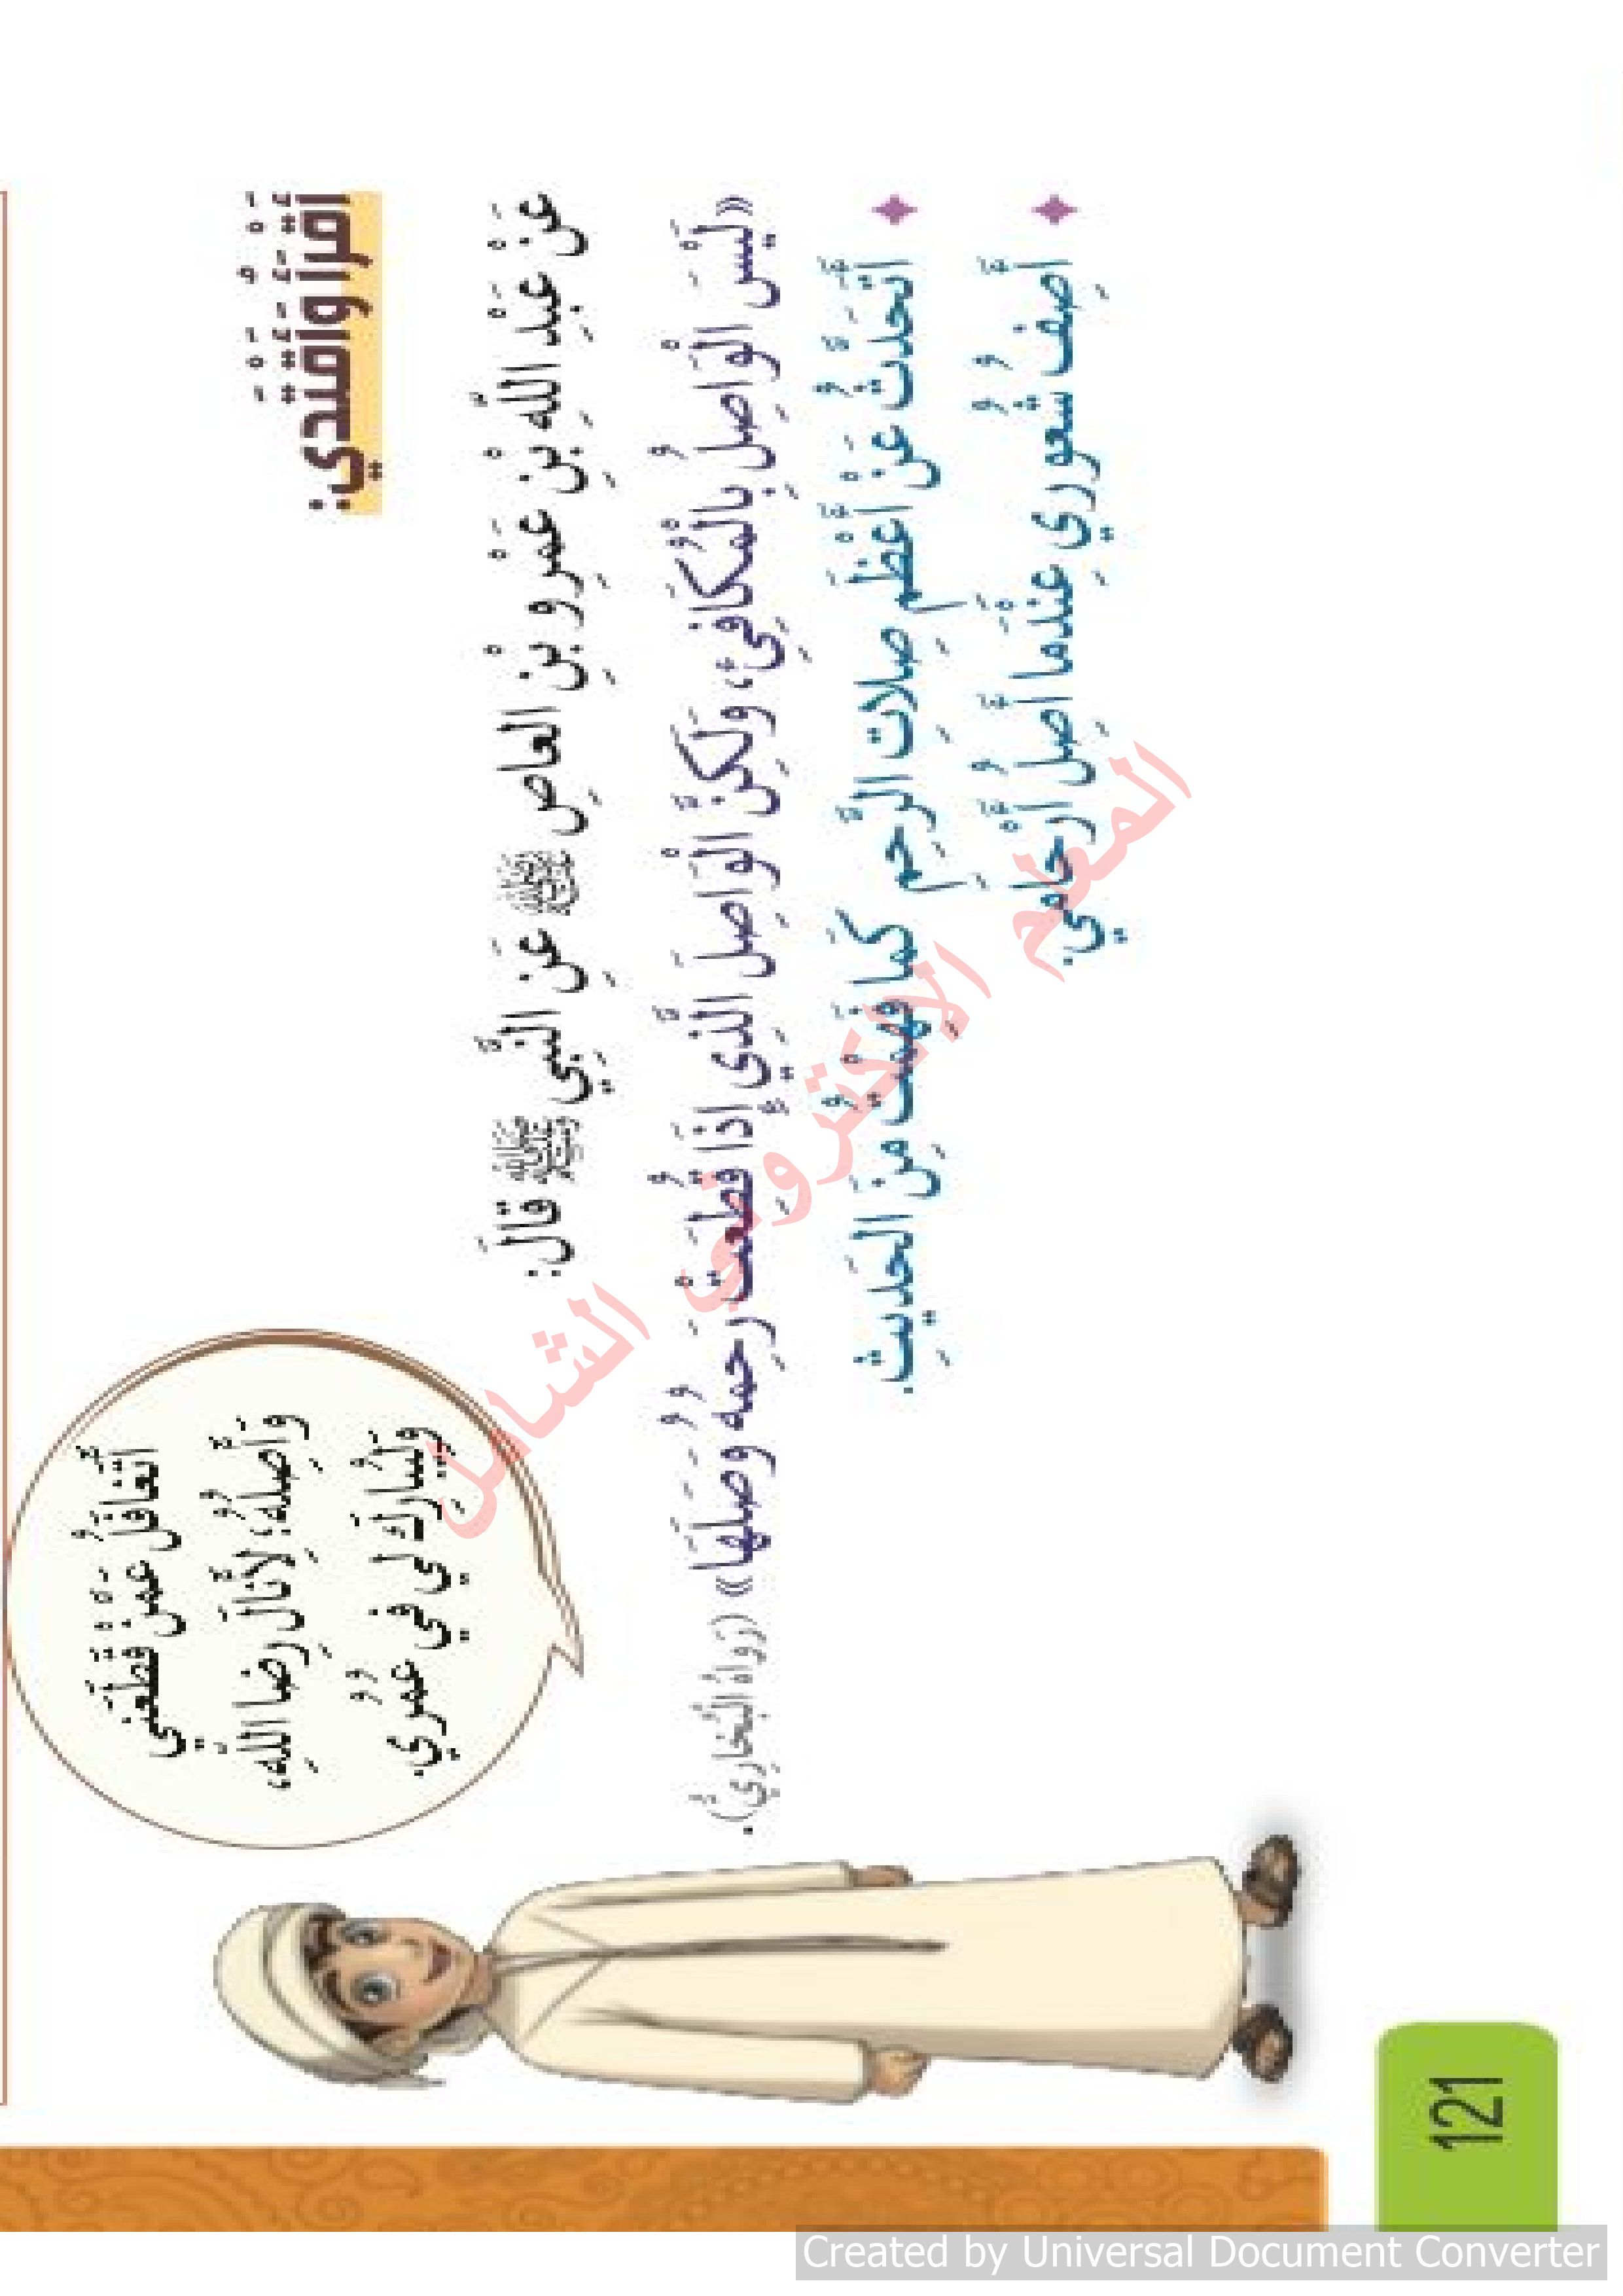 أَتَغَافَلُ عَمَّنْ قَطَعَنِي
وَأَصِلُهُ؛ لِأَنَالَ رِضَا اللَّهِ،
وَلِيُبَارَكَ لِي فِي عُمُرِي.
أَقْرَأُ وَأَقْتَدِي:
عَنْ عَبْدِ اللَّهِ بْنِ عَمْرِو بْنِ العاصِ رضي الله عنه عَنِ النَّبِيِّ ﷺ قَالَ:
«لَيْسَ الْوَاصِلُ بِالْمُكَافِئِ، وَلَكِنَّ الْوَاصِلَ الَّذِي إِذَا قُطِعَتْ رَحِمُهُ وَصَلَهَا» (رَوَاهُ الْبُخَارِيُّ).
أَتَحَدَّثُ عَنْ أَعْظَمِ صِلَاتِ الرَّحِمِ كَمَا فَهِمْتُ مِنَ الحَدِيثِ.
أَصِفُ شُعُورِي عِنْدَمَا أَصِلُ أَرْحَامِي.
المعلم الالكتروني الشامل
121
Created by Universal Document Converter